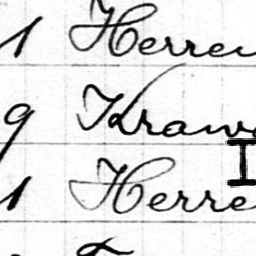 1 Herren
9 Kraw
I
1 Herre